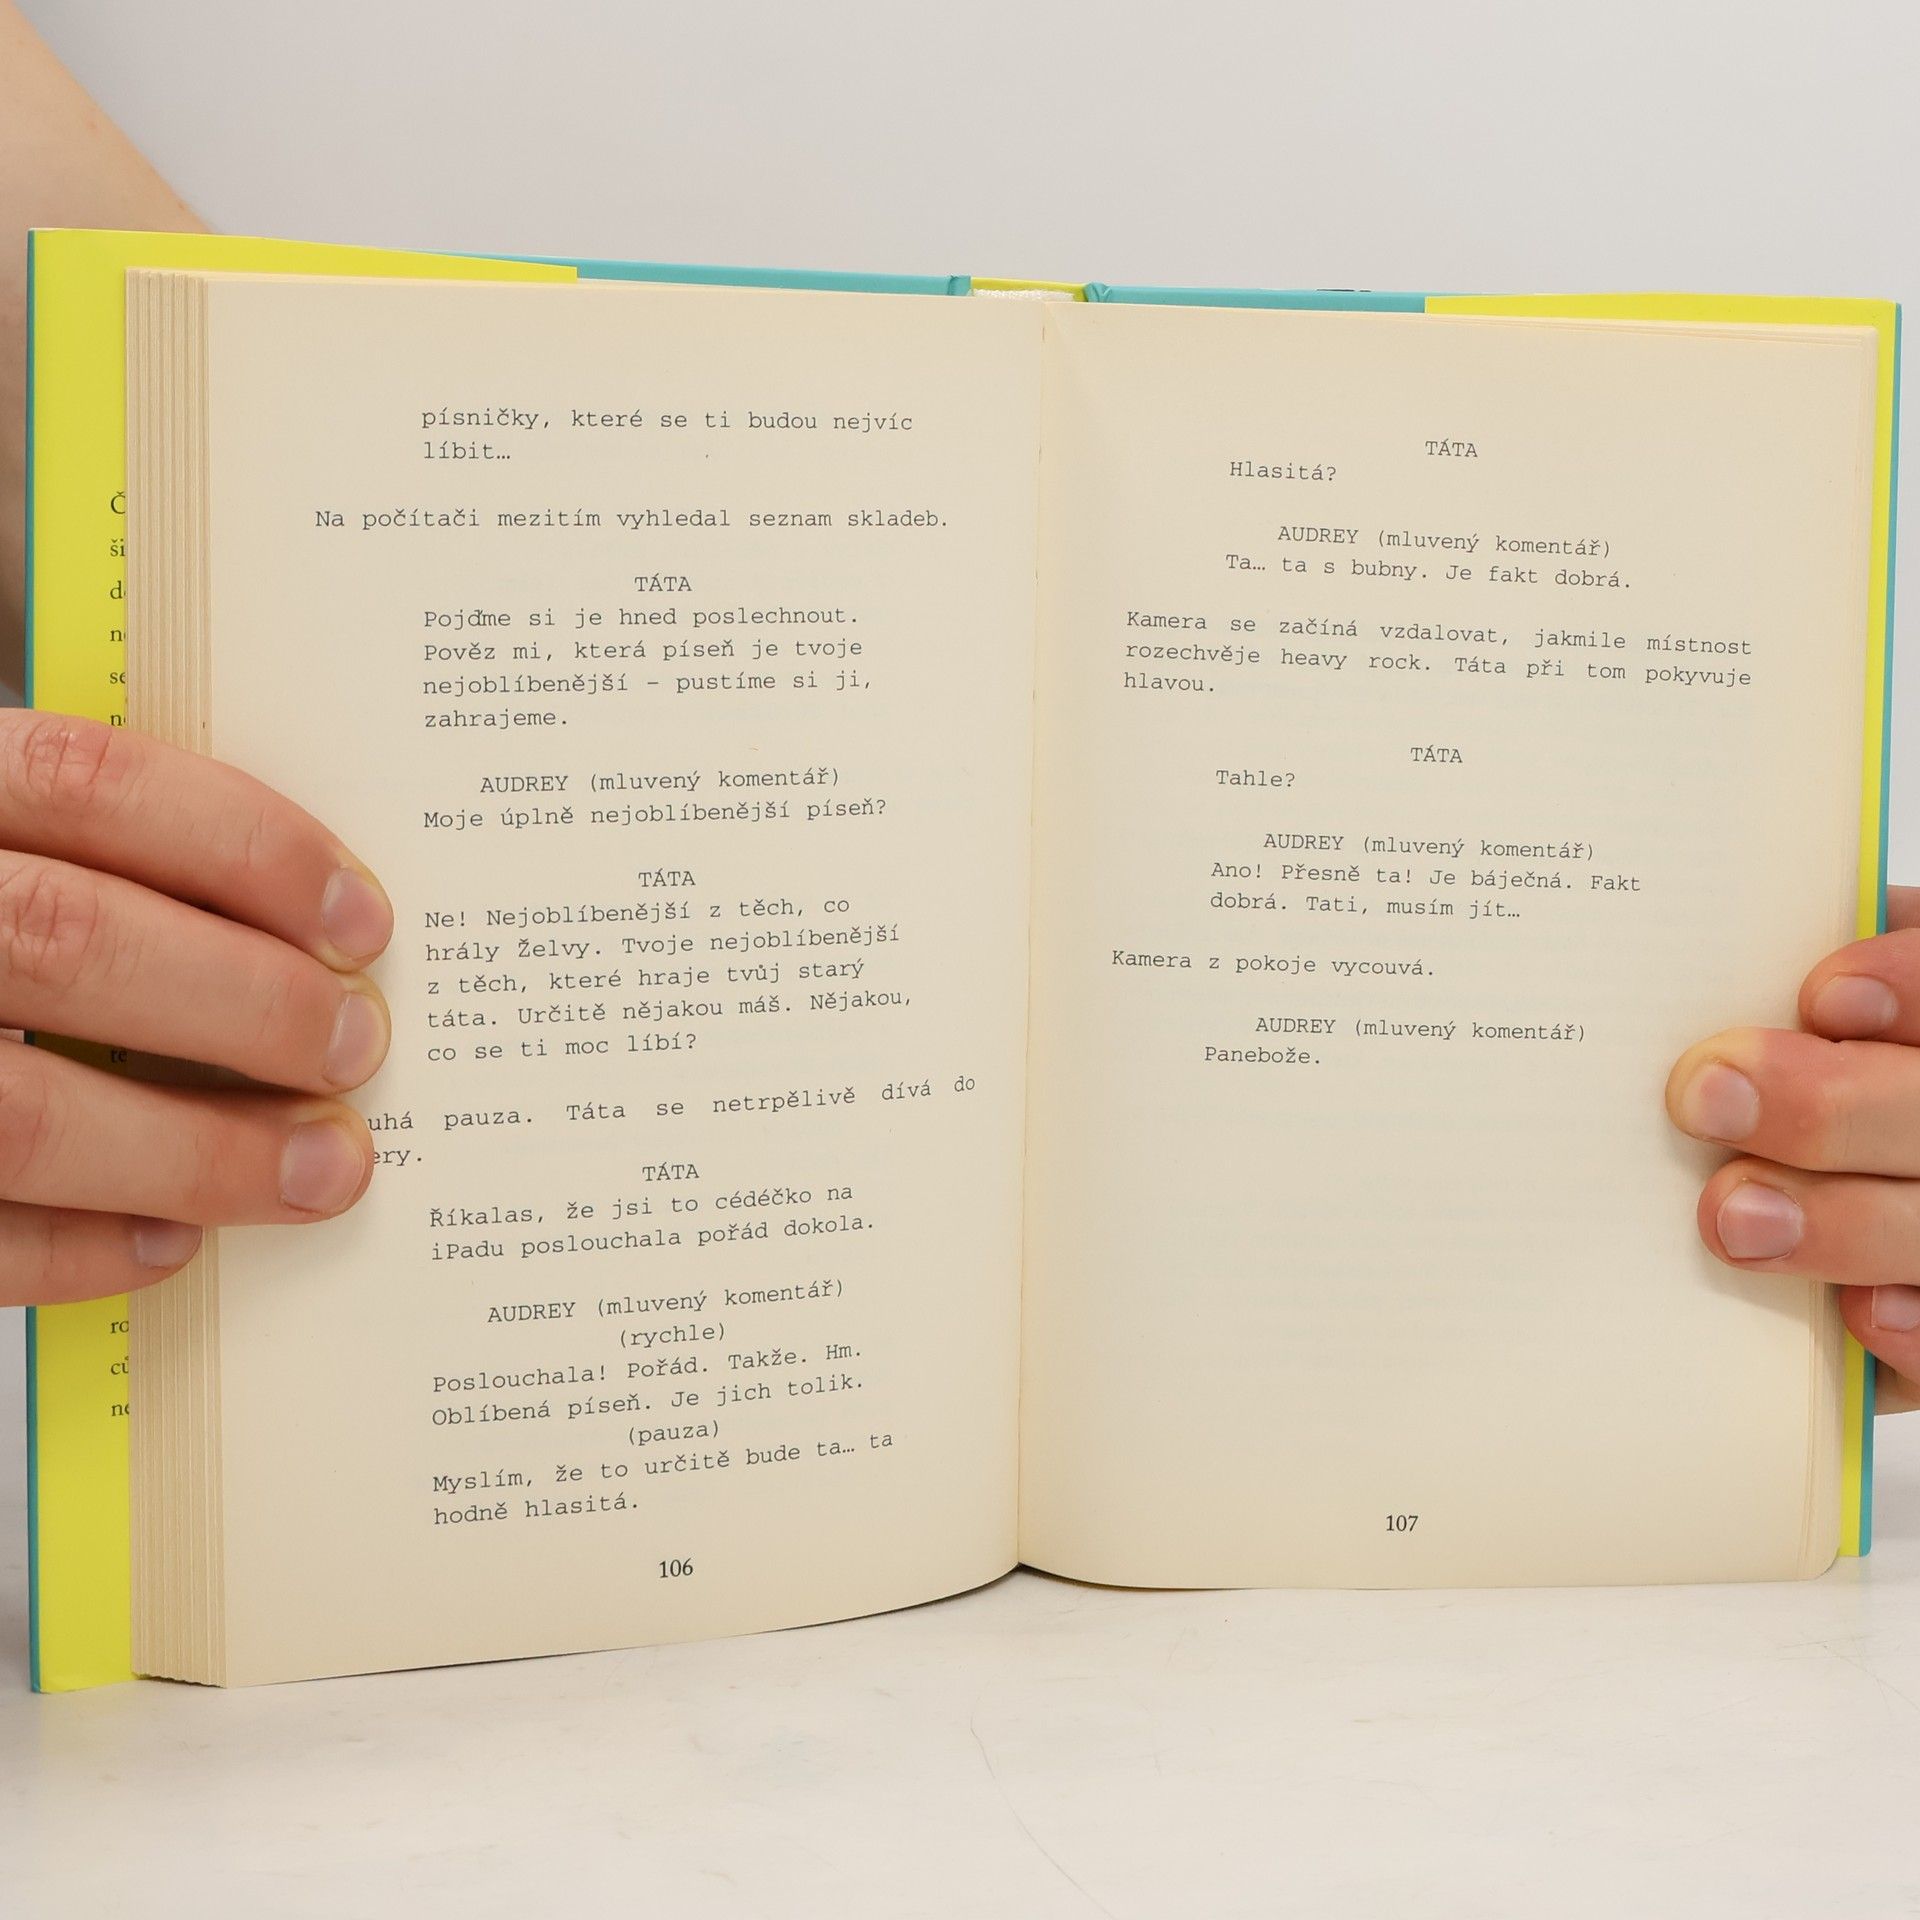 písničky, které se ti budou nejvíc
líbit…
Na počítači mezitím vyhledal seznam skladeb.
TÁTA
Pojďme si je hned poslechnout.
Pověz mi, která píseň je tvoje
nejoblíbenější – pustíme si ji,
zahrajeme.
AUDREY (mluvený komentář)
Moje úplně nejoblíbenější píseň?
TÁTA
Ne! Nejoblíbenější z těch, co
hrály Želvy. Tvoje nejoblíbenější
z těch, které hraje tvůj starý
táta. Určitě nějakou máš. Nějakou,
co se ti moc líbí?
pauza. Táta se netrpělivě dívá do
TÁTA
Říkalas, že jsi to cédéčko na
iPadu poslouchala pořád dokola.
AUDREY (mluvený komentář)
(rychle)
Poslouchala! Pořád. Takže. Hm.
Oblíbená píseň. Je jich tolik.
(pauza)
Myslím, že to určitě bude ta… ta
hodně hlasitá.
106
TÁTA
Hlasitá?
AUDREY (mluvený komentář)
Ta… ta s bubny. Je fakt dobrá.
Kamera se začíná vzdalovat, jakmile místnost
rozechvěje heavy rock. Táta při tom pokyvuje
hlavou.
TÁTA
Tahle?
AUDREY (mluvený komentář)
Ano! Přesně ta! Je báječná. Fakt
dobrá. Tati, musím jít…
Kamera z pokoje vycouvá.
AUDREY (mluvený komentář)
Panebože.
107